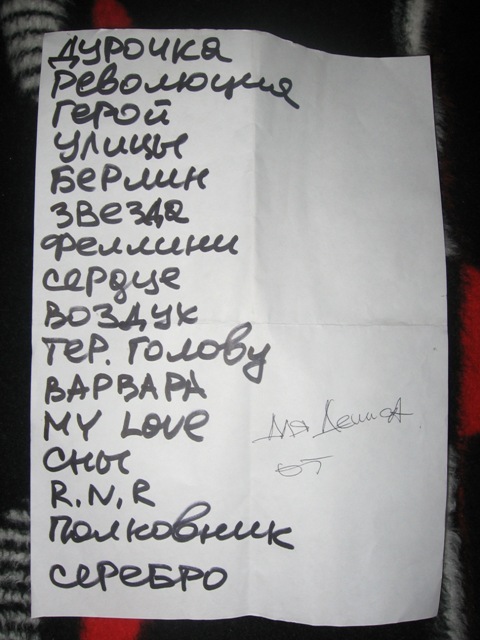 ДУРОЧКА
РЕВОЛЮЦИЯ
ГЕРОЙ
УЛИЦЫ
БЕРЛИН
ЗВЕЗДА
ФЕЛЛИНИ
СЕРДЦЕ
ВОЗДУХ
ТЕР. ГОЛОВУ
ВАРВАРА
MY LOVE
СНЫ
R.N.R
ПОЛКОВНИК
СЕРЕБРО
Для Дениса
от